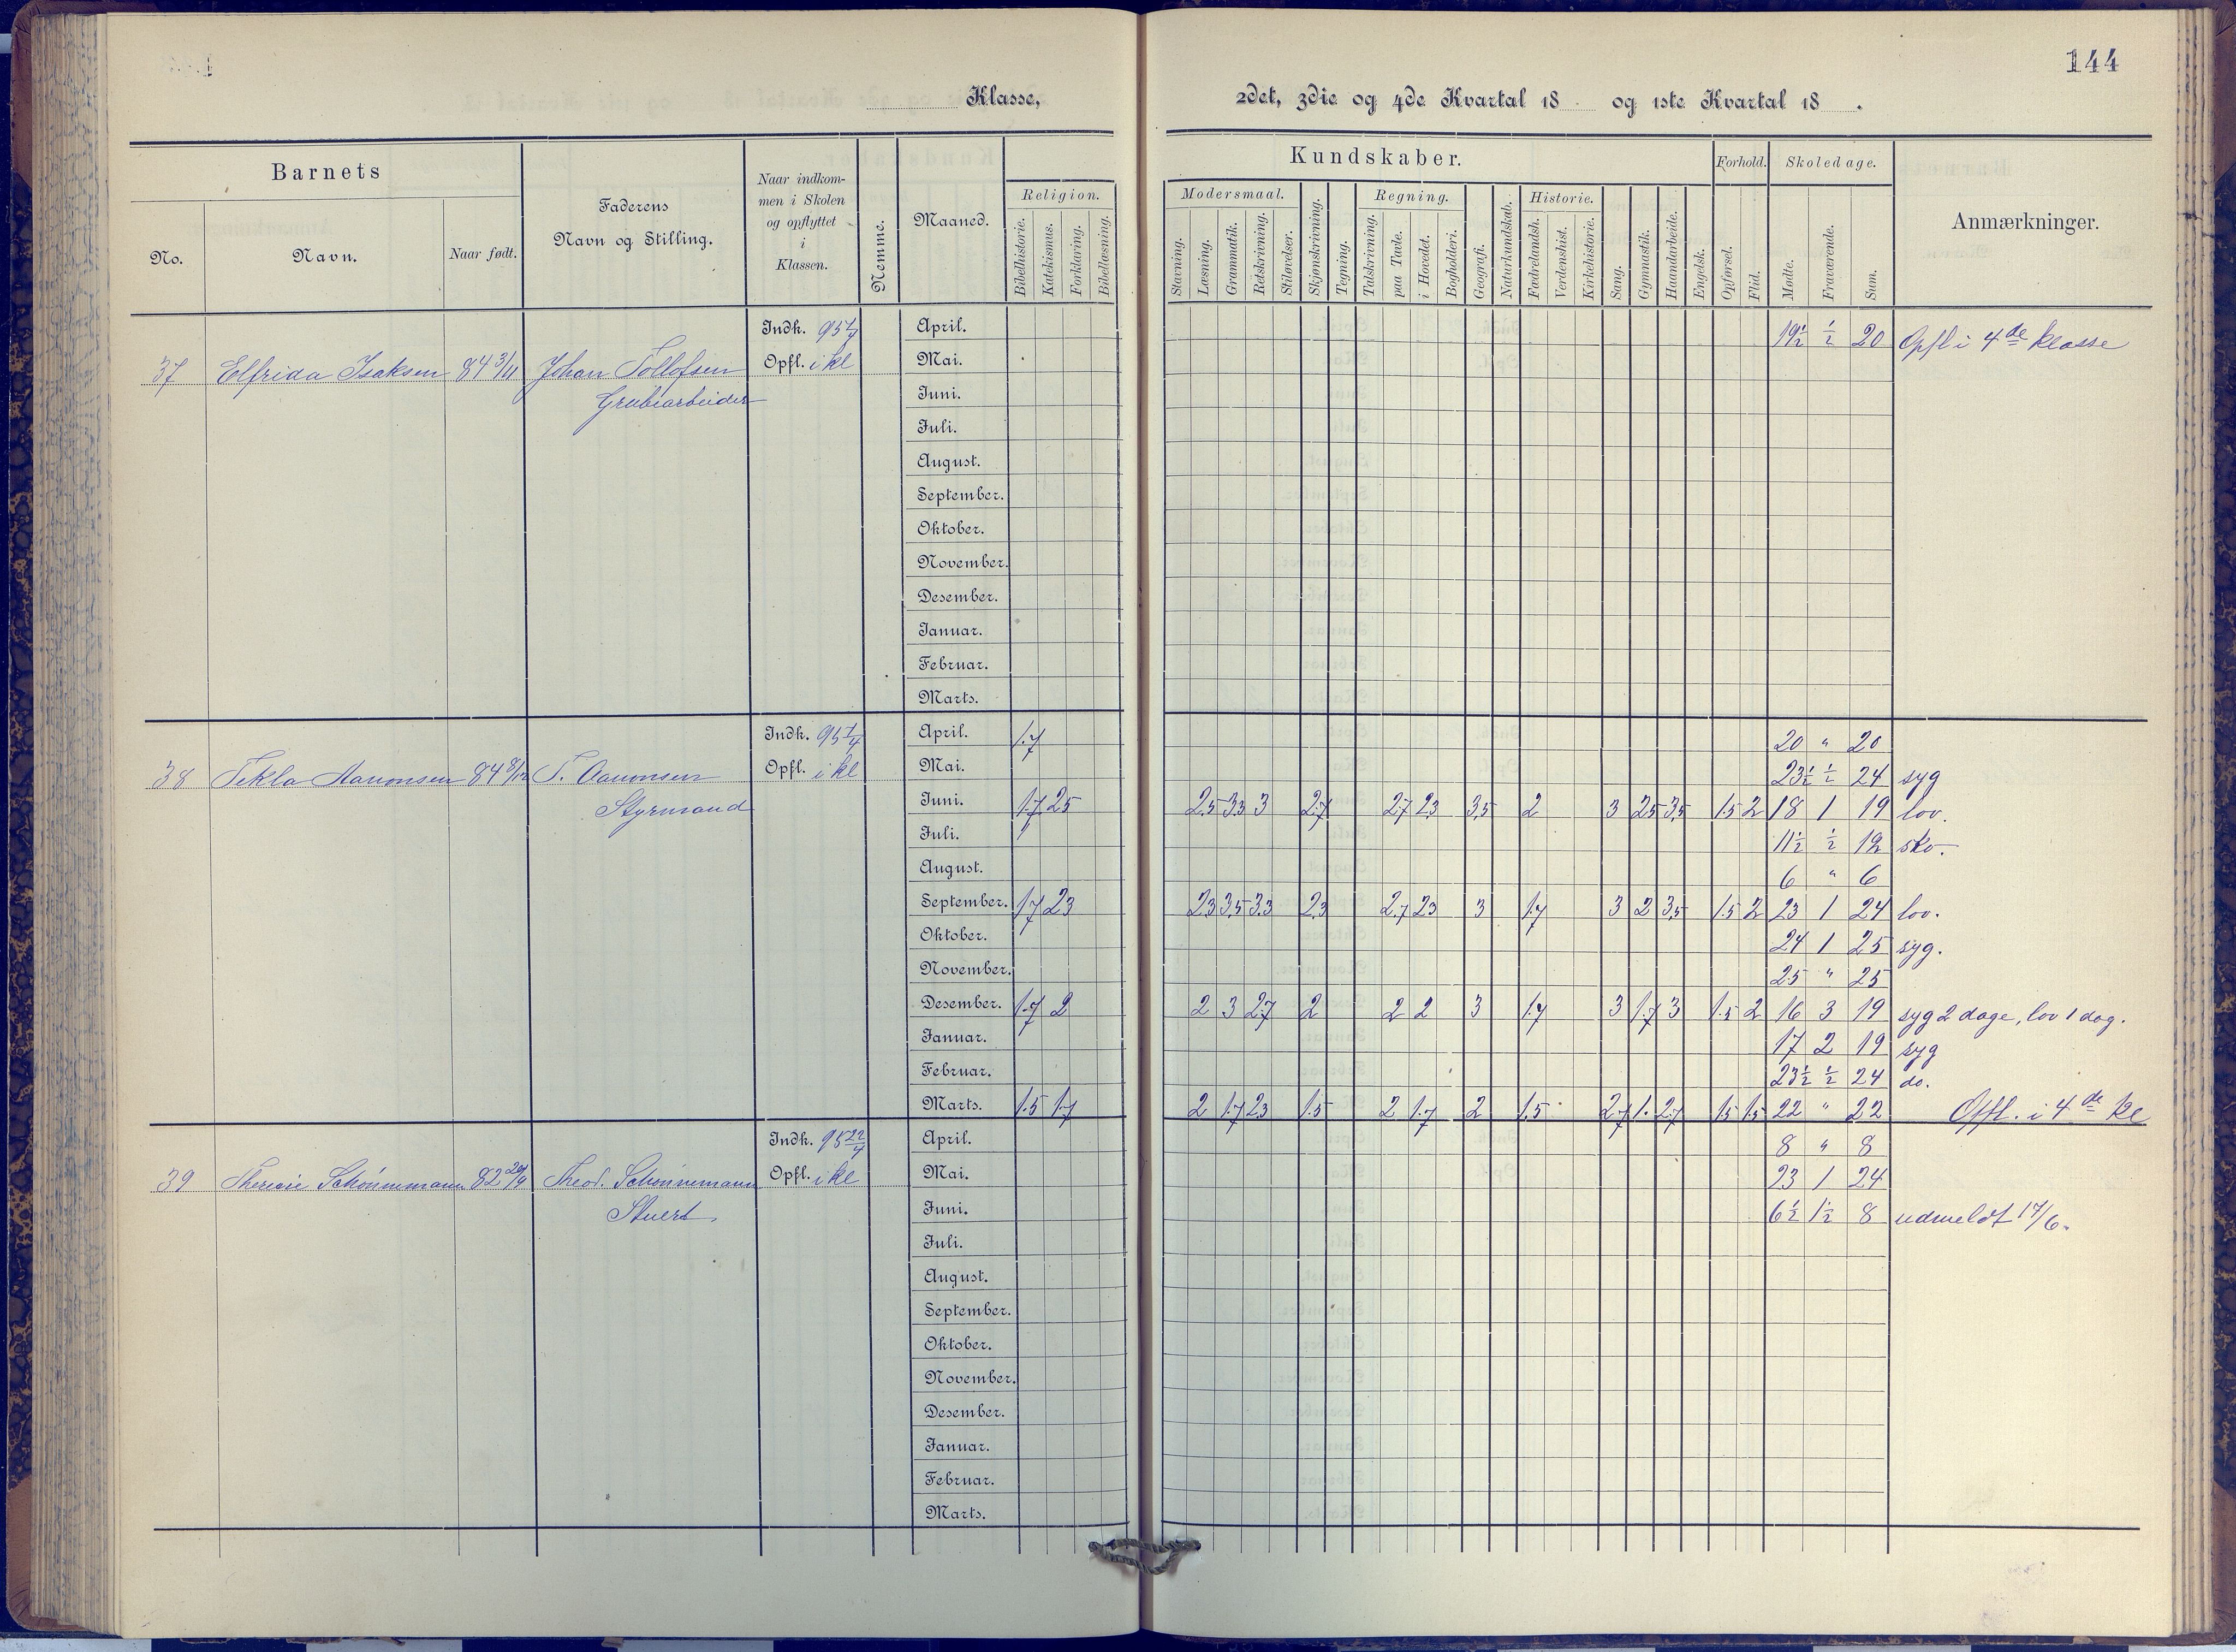 144
Klasse,
2det, 3die og 4de Kvartal 18 og 1ste Kvartal 18 .
Barnets
No.
Navn.
Naar født.
Faderens
Navn og Stilling.
Naar indkom-
men i Skolen
og opflyttet
i
Klassen.
Nemme.
Maaned.
Religion.
Bibelhistorie.
Katekismus.
Forklaring.
Bibellæsning.
Kundskaber.
Modersmaal.
Stavning.
Læsning.
Grammatik.
Retskrivning.
Stiløvelser.
Skjønskrivning.
Tegning.
Regning.
Talskrivning.
paa Tavle.
i Hovedet.
Bogholderi.
Geografi.
Naturkundskab.
Historie.
Fædrelandsh.
Verdenshist.
Kirkehistorie.
Sang.
Gymnastik.
Haandarbeide.
Engelsk.
Forhold.
Opførsel.
Flid.
Skoledage.
Mødte.
Fraværende.
Sum.
Anmærkninger.
37 Elfrida Isaksen 84 3/11 Johan Tollofsen
Grubearbeider
Indk. 95 1/4
Opfl. i kl
April. 19½ ½ 20 Opfl i 4de klasse
Mai.
Juni.
Juli.
August.
September.
Oktober.
November.
Desember.
Januar.
Februar.
Marts.
38 Tekla Aanonsen 84 8/12 T. Aanonsen
Styrmand
Indk. 95 1/4
Opfl. i kl
April. 1.7 20 " 20
Mai. 23½ ½ 24 syg
Juni. 1.7 2.5 2.5 3.3 3 2.7 2.7 2.3 3.5 2 3 2.5 3.5 1.5 2 18 1 19 lov.
Juli. 11½ ½ 12 sko.
August. 6 " 6
September. 1.7 2.3 2.3 3.5 3.3 2.3 2.7 2.3 3 1.7 3 2 3.5 1.5 2 23 1 24 lov.
Oktober. 24 1 25 syg.
November. 25 " 25
Desember. 1.7 2 2 3 2.7 2 2 2 3 1.7 3 1.7 3 1.5 2 16 3 19 syg 2 dage, lov 1 dag.
Januar. 17 2 19 syg
Februar. 23½ ½ 24 do.
Marts. 1.5 1.7 2 1.7 2.3 1.5 2 1.7 2 1.5 2.7 1. 2.7 1.5 1.5 22 " 22 Opfl. i 4de kl
39 Schønnemann 82 Theod. Schønnemann
Stuert
Indk. 95 22/4
Opfl. i kl
April. 8 " 8
Mai. 23 1 24
Juni. 6½ 1½ 8 udmeldt 17/6.
Juli.
August.
September.
Oktober.
November.
Desember.
Januar.
Februar.
Marts.